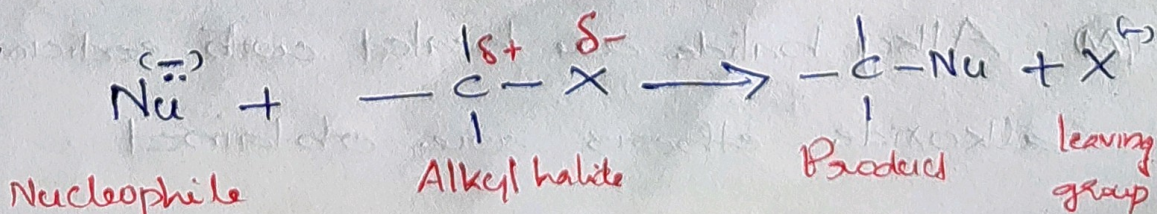 Nu:(−) + —C(δ+)—X(δ−) ⟶ —C—Nu + X(−)
Nucleophile Alkyl halide Product leaving group